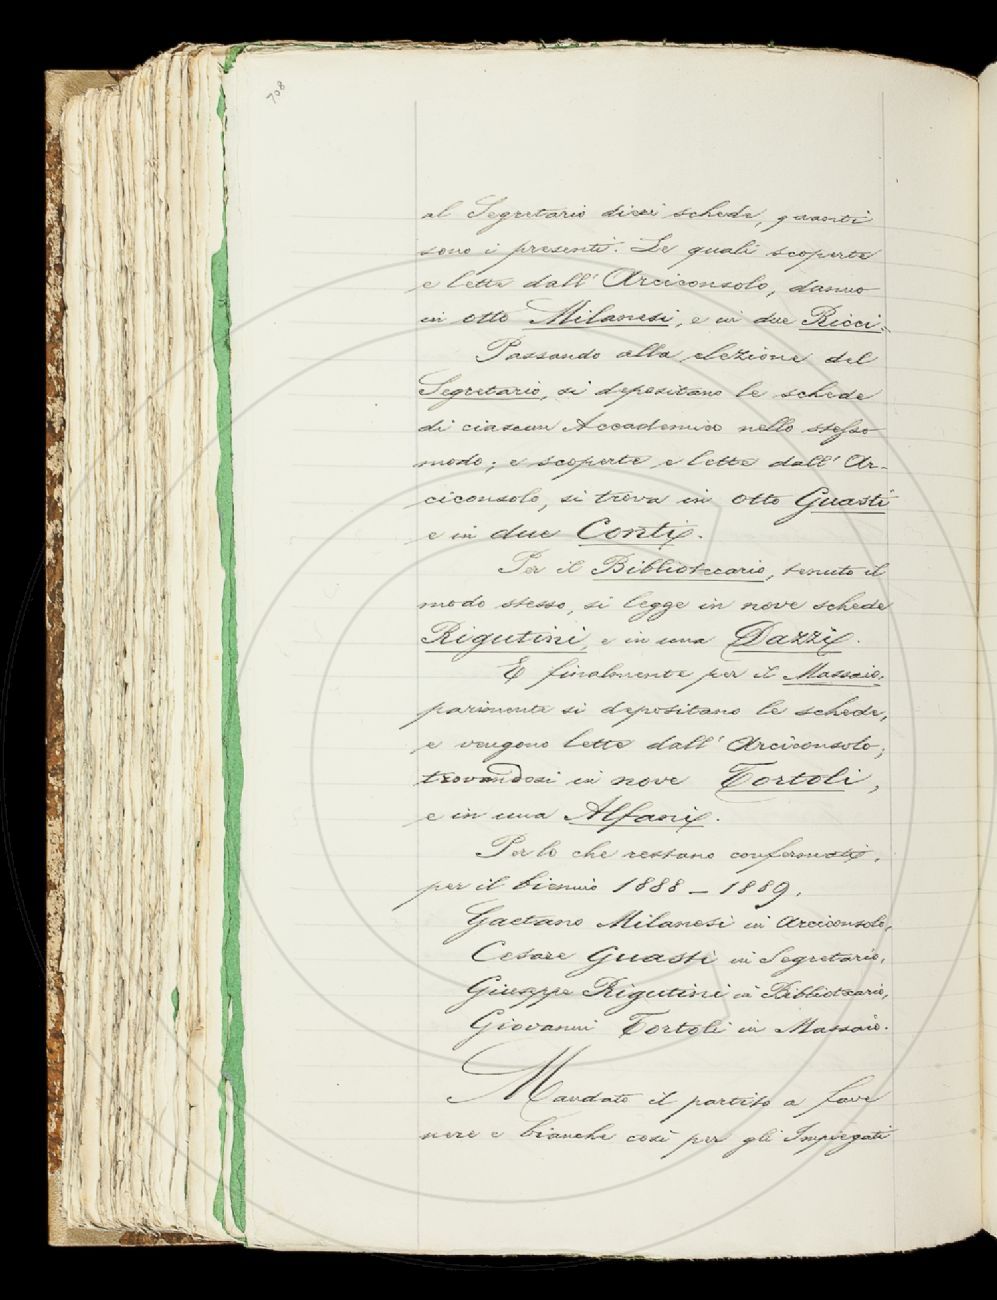 708
al Segretario dieci schede, quanti
sono i presenti. Le quali scoperte
e lette dall' Arciconsolo, danno
in otto Milanesi, e in due Ricci.
Passando alla elezione del
Segretario, si depositano le schede
di ciascun Accademico nello stesso
modo; e scoperte e lette dall' Ar-
ciconsolo, si trova in otto Guasti
e in due Conti.
Per il Bibliotecario, tenuto il
modo stesso, si legge in nove schede
Rigutini, e in una Dazzi.
E finalmente per il Massaio,
parimente si depositano le schede,
e vengono lette dall' Arciconsolo;
trovandosi in nove Tortoli,
e in una Alfani.
Per lo che restano confermati,
per il biennio 1888 - 1889.
Gaetano Milanesi in Arciconsolo,
Cesare Guasti in Segretario,
Giuseppe Rigutini in Bibliotecario,
Giovanni Tortoli in Massaio.
Mandato il partito a fave
nere e bianche così per gli Impiegati